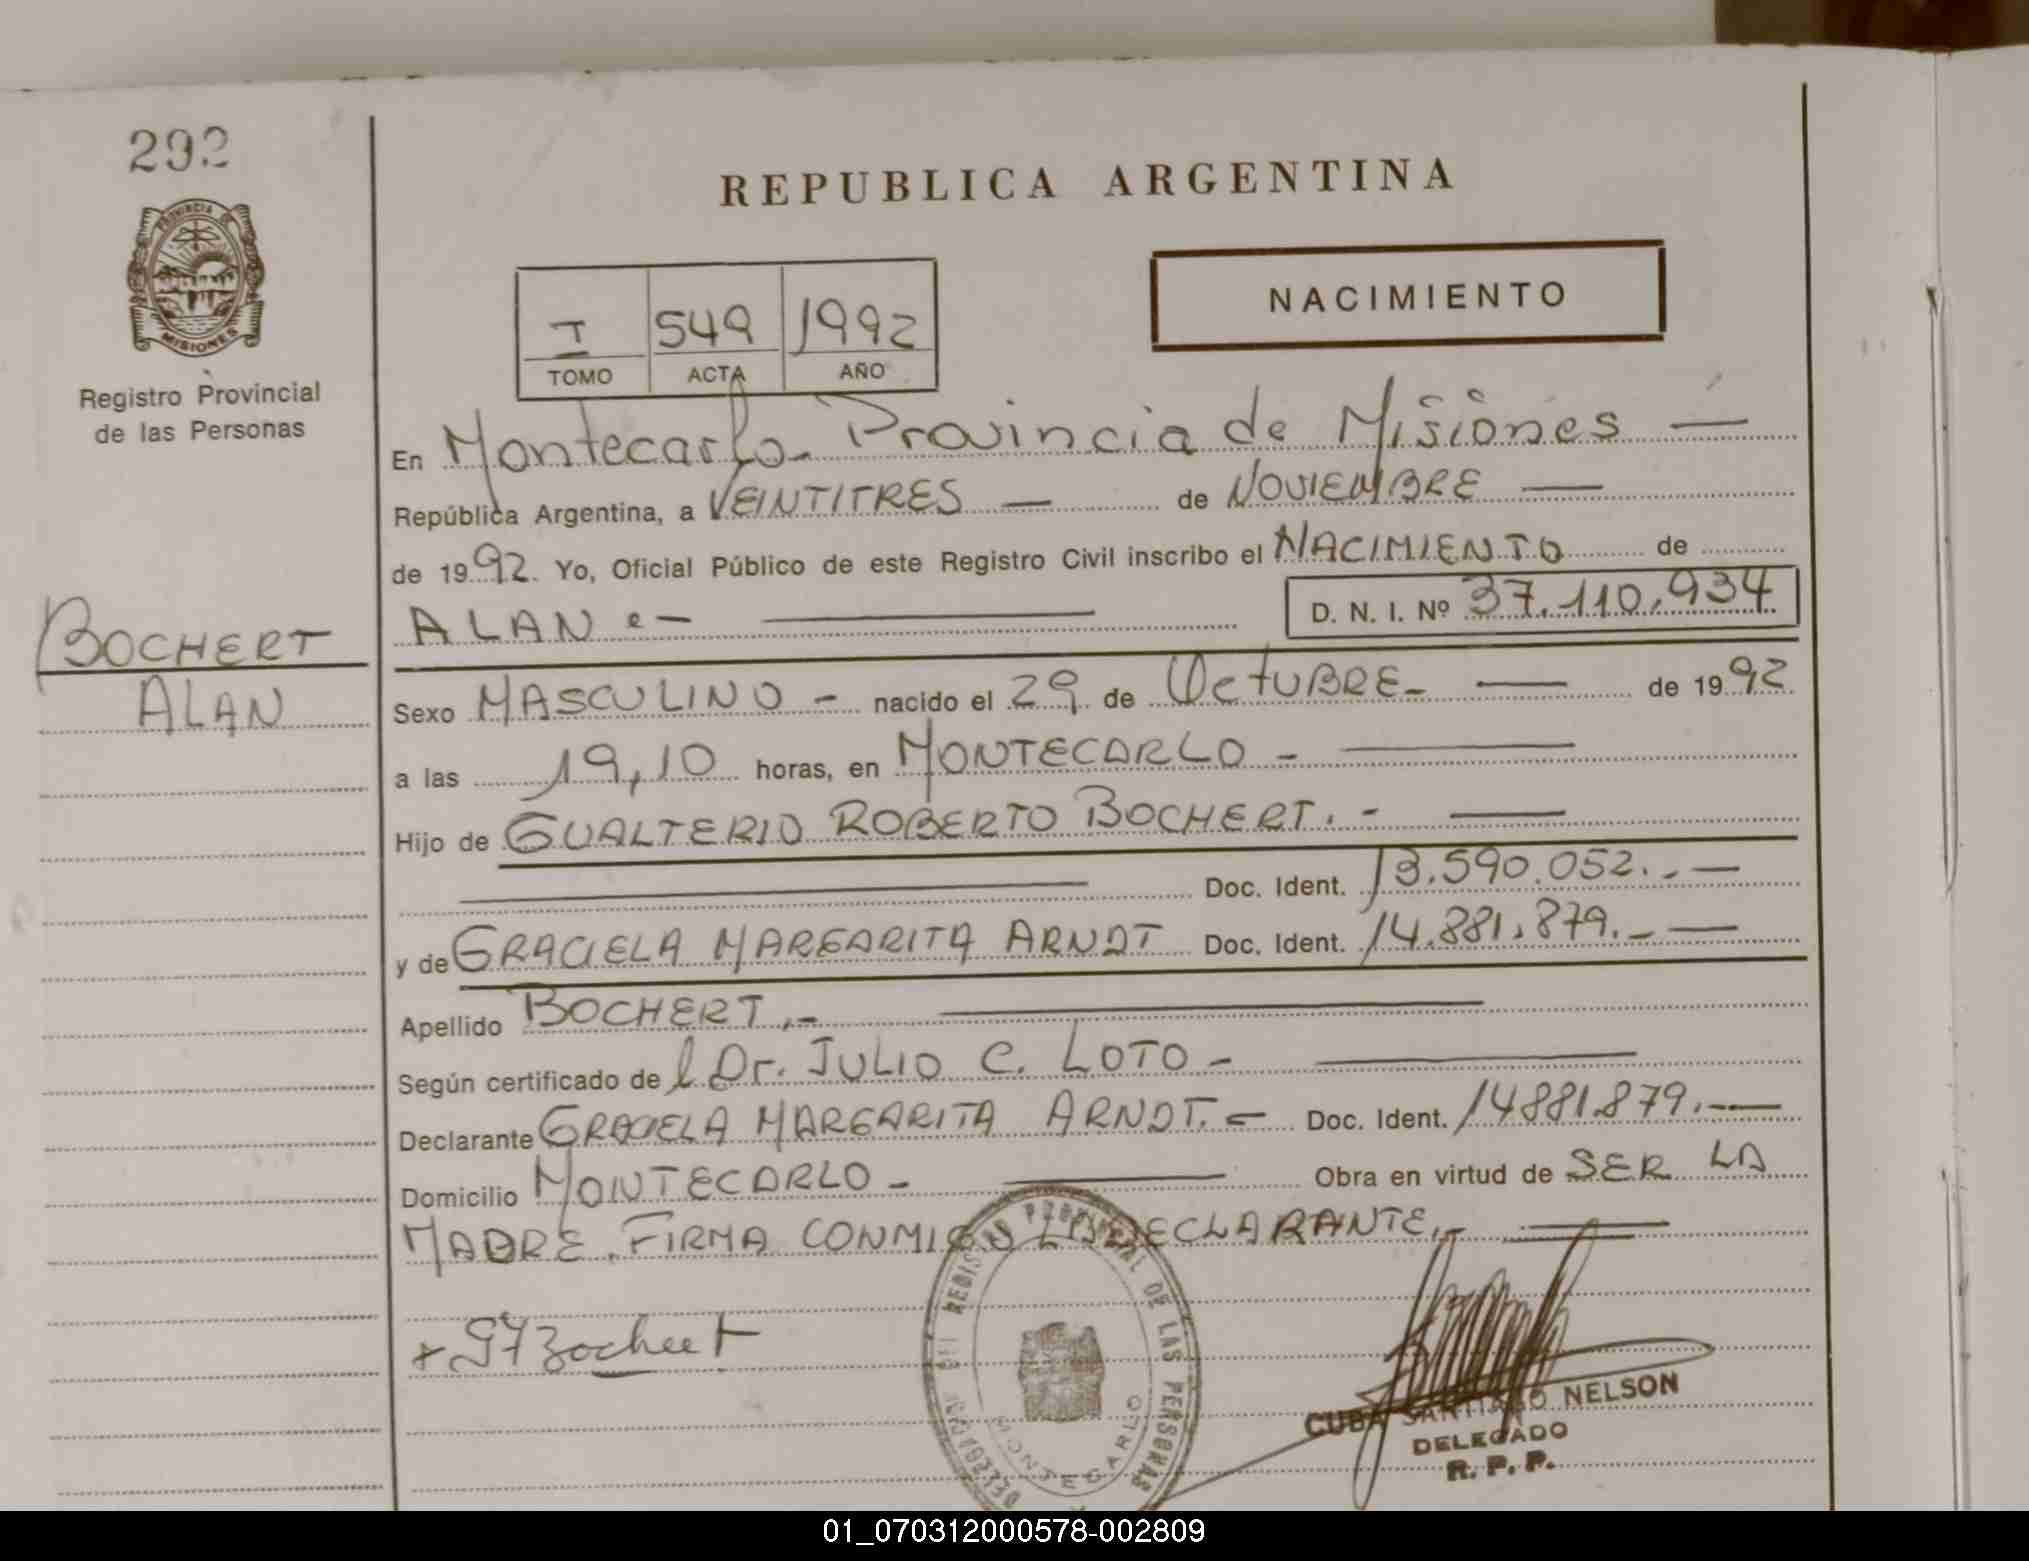 292
PROVINCIA DE
MISIONES
Registro Provincial
de las Personas
BOCHERT
ALAN
REPUBLICA ARGENTINA
I 549 1992
TOMO ACTA AÑO
NACIMIENTO
En Montecarlo Provincia de Misiones —
República Argentina, a VEINTITRES — de NOVIEMBRE —
de 1992. Yo, Oficial Público de este Registro Civil inscribo el NACIMIENTO de
ALAN .- — D. N. I. Nº 37.110.934
Sexo MASCULINO - nacido el 29 de OCTUBRE - — de 1992
a las 19,10 horas, en MONTECARLO - —
Hijo de GUALTERIO ROBERTO BOCHERT. - —
— Doc. Ident. 13.590.052. - —
y de GRACIELA MARGARITA ARNDT Doc. Ident. 14.881.879. - —
Apellido BOCHERT .- —
Según certificado de l Dr. JULIO C. LOTO - —
Declarante GRACIELA MARGARITA ARNDT. = Doc. Ident. 14881.879. - —
Domicilio MONTECARLO - — Obra en virtud de SER LA
MADRE. FIRMA CONMIGO LA DECLARANTE. - —
REGISTRO PROVINCIAL DE LAS PERSONAS
MONTECARLO
CUBA SANTIAGO NELSON
DELEGADO
R. P. P.
01_070312000578-002809